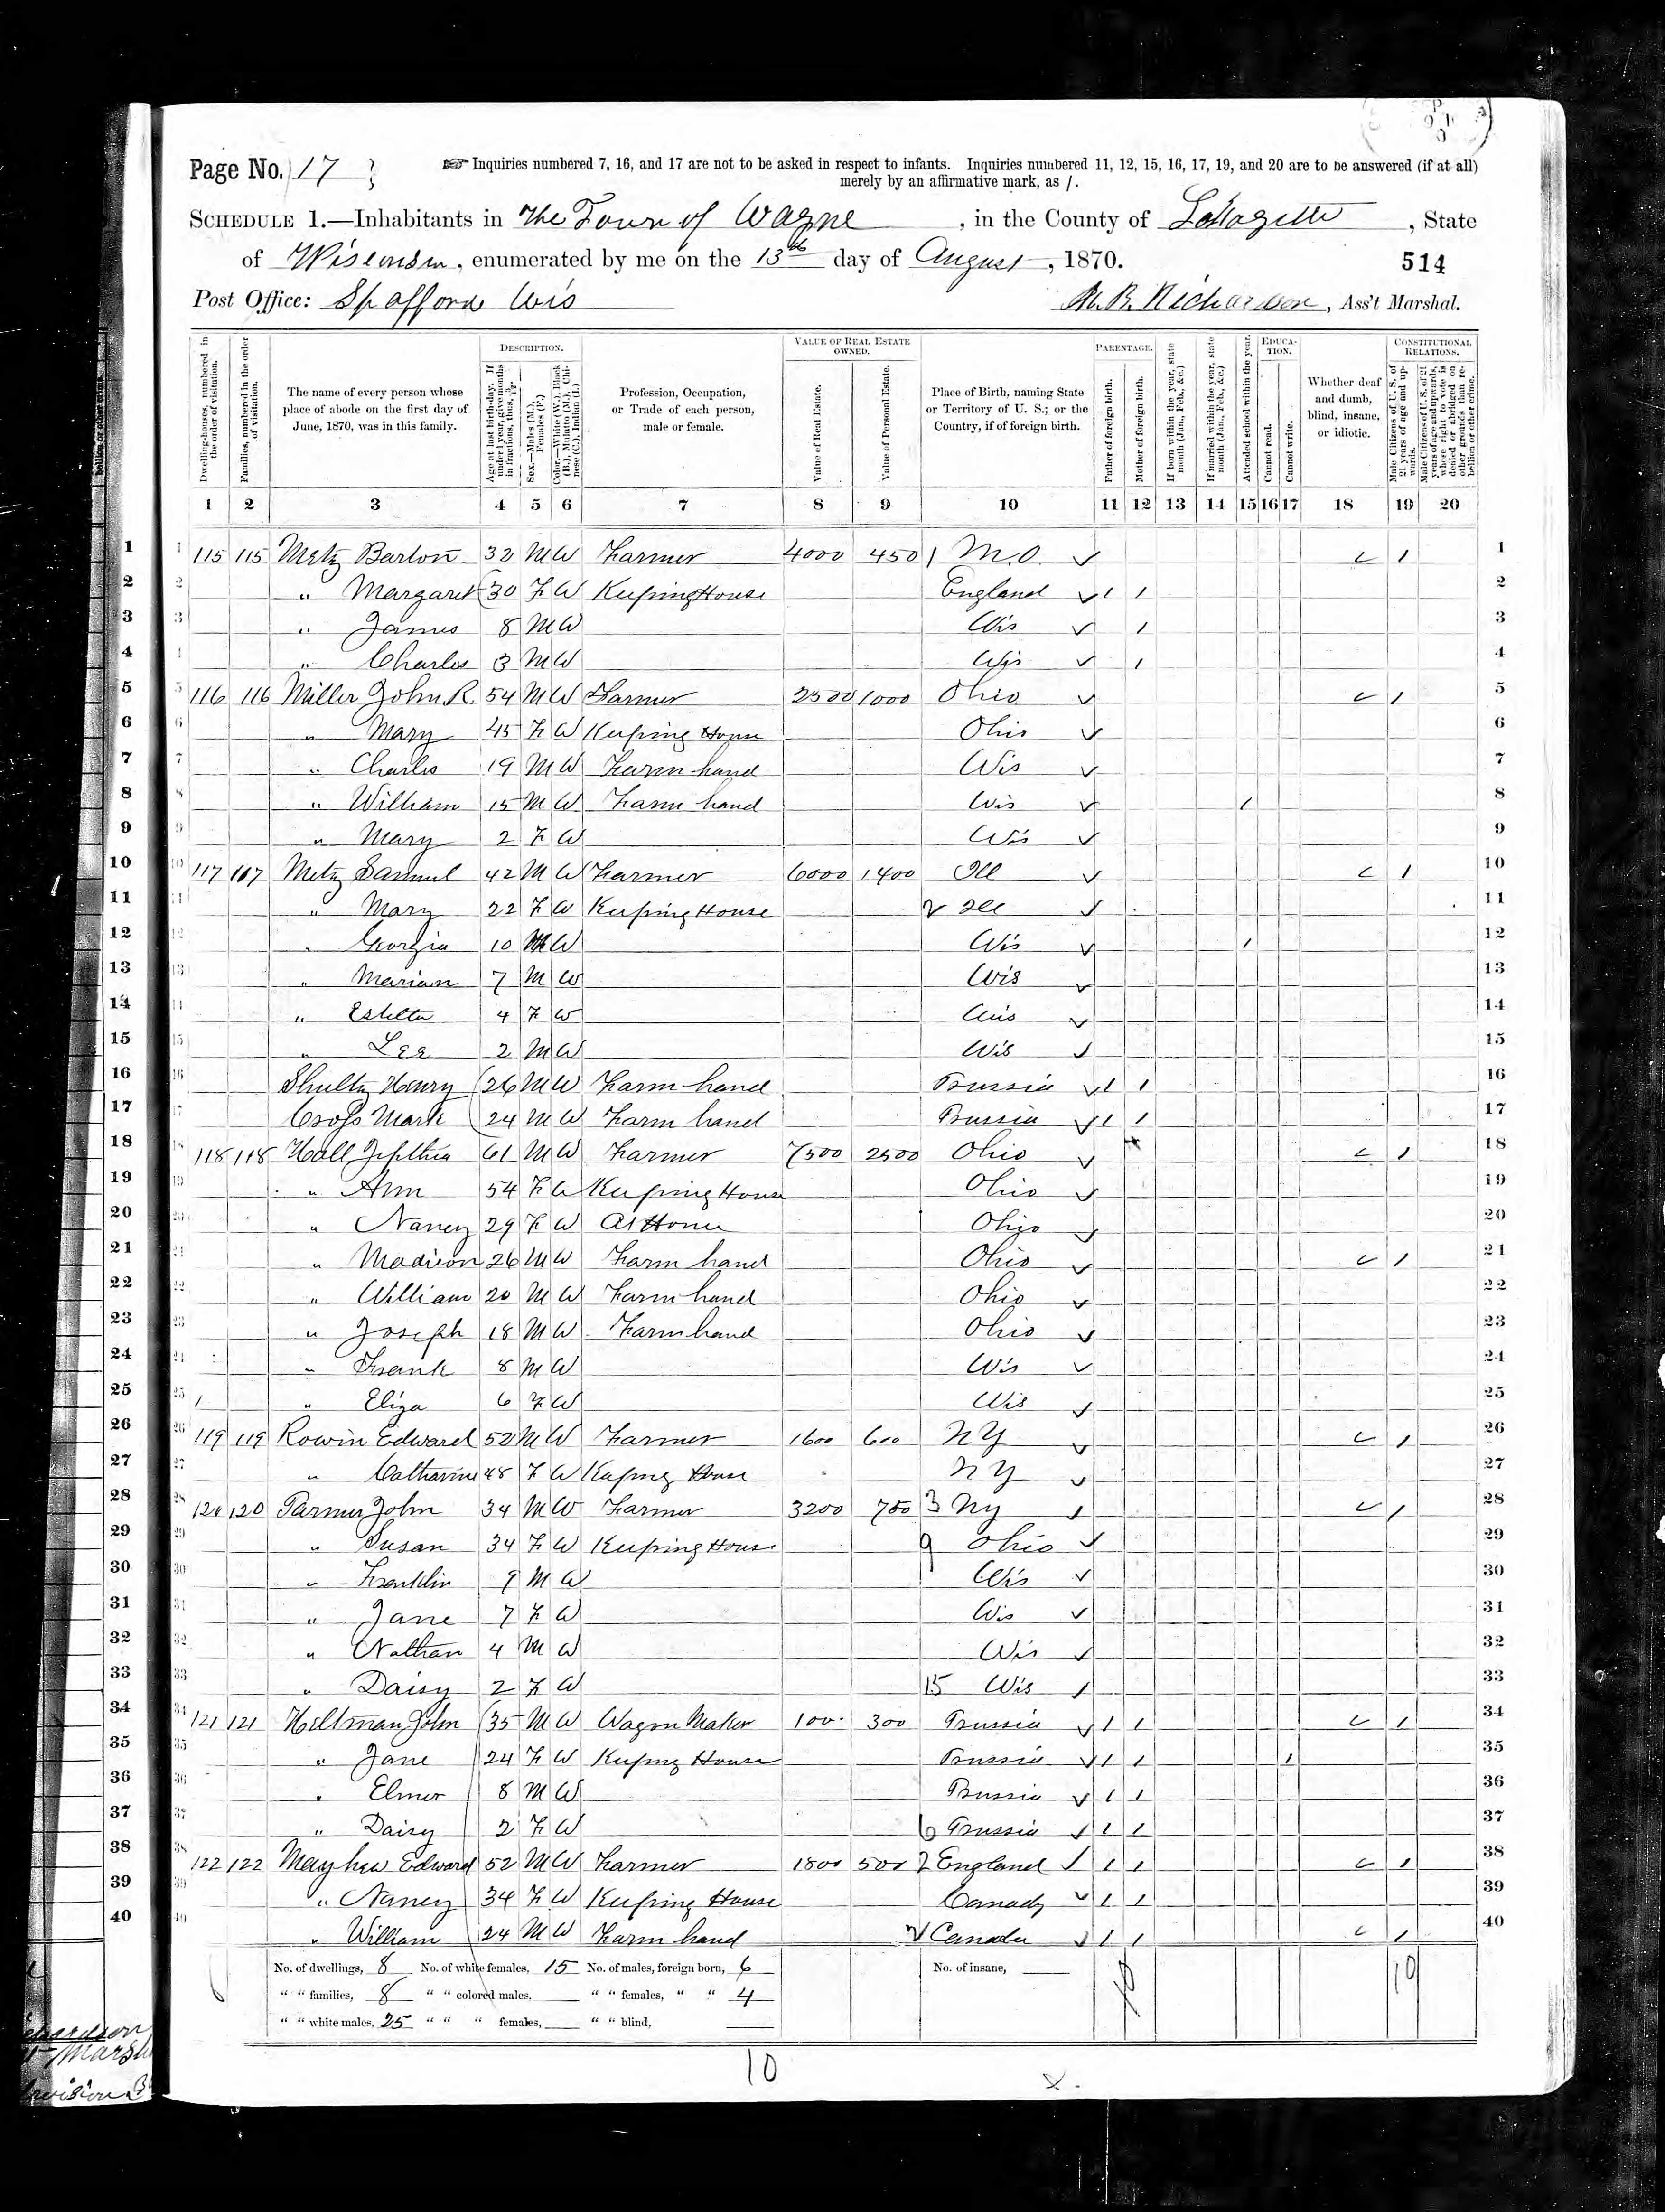 Page No. 17
☞ Inquiries numbered 7, 16, and 17 are not to be asked in respect to infants. Inquiries numbered 11, 12, 15, 16, 17, 19, and 20 are to be answered (if at all)
merely by an affirmative mark, as /.
SCHEDULE 1.—Inhabitants in The Town of Wayne, in the County of LaFayette, State
of Wisconsin, enumerated by me on the 13th day of August, 1870.
514
Post Office: Spafford Wis
M. B. Richardson, Ass't Marshal.
Dwelling-houses, numbered in the order of visitation.
Families, numbered in the order of visitation.
The name of every person whose place of abode on the first day of June, 1870, was in this family.
DESCRIPTION.
Age at last birth-day. If under 1 year, give months in fractions, thus, 3/12.
Sex.—Males (M.), Females (F.)
Color.—White (W.), Black (B.), Mulatto (M.), Chinese (C.), Indian (I.)
Profession, Occupation, or Trade of each person, male or female.
VALUE OF REAL ESTATE OWNED.
Value of Real Estate.
Value of Personal Estate.
Place of Birth, naming State or Territory of U. S.; or the Country, if of foreign birth.
PARENTAGE.
Father of foreign birth.
Mother of foreign birth.
If born within the year, state month (Jan., Feb., &c.)
If married within the year, state month (Jan., Feb., &c.)
Attended school within the year.
EDUCATION.
Cannot read.
Cannot write.
Whether deaf and dumb, blind, insane, or idiotic.
CONSTITUTIONAL RELATIONS.
Male Citizens of U. S. of 21 years of age and upwards.
Male Citizens of U. S. of 21 years of age and upwards, where right to vote is denied or abridged on other grounds than rebellion or other crime.
1 2 3 4 5 6 7 8 9 10 11 12 13 14 15 16 17 18 19 20
1 115 115 Metz Barton 32 M W Farmer 4000 450 1 M.O. ✓ 1 1
2 " Margaret 30 F W Keeping House England ✓ 1 1 2
3 " James 8 M W Wis ✓ 1 3
4 " Charles 3 M W Wis ✓ 1 4
5 116 116 Miller John R. 54 M W Farmer 2500 1000 Ohio ✓ 1 5
6 " Mary 45 F W Keeping House Ohio ✓ 6
7 " Charles 19 M W Farm hand Wis ✓ 7
8 " William 15 M W Farm hand Wis ✓ 1 8
9 " Mary 2 F W Wis ✓ 9
10 117 117 Metz Samuel 42 M W Farmer 6000 1400 Ill ✓ 1 10
11 " Mary 22 F W Keeping House 2 Ill ✓ 11
12 " Georgia 10 M W Wis ✓ 1 12
13 " Marian 7 M W Wis ✓ 13
14 " Estella 4 F W Wis ✓ 14
15 " Lee 2 M W Wis ✓ 15
16 Shultz Henry 26 M W Farm hand Prussia ✓ 1 1 16
17 Cross Mark 24 M W Farm hand Prussia ✓ 1 1 17
18 118 118 Hall Jepthia 61 M W Farmer 7500 2500 Ohio ✓ 1 18
19 " Ann 54 F W Keeping House Ohio ✓ 19
20 " Nancy 29 F W At Home Ohio ✓ 20
21 " Madison 26 M W Farm hand Ohio ✓ 1 21
22 " William 20 M W Farm hand Ohio ✓ 22
23 " Joseph 18 M W Farm hand Ohio ✓ 23
24 " Frank 8 M W Wis ✓ 24
25 " Eliza 6 F W Wis ✓ 25
26 119 119 Rowin Edward 52 M W Farmer 1600 600 NY ✓ 1 26
27 " Catharine 48 F W Keeping House NY ✓ 27
28 120 120 Parmer John 34 M W Farmer 3200 750 3 Ny ✓ 1 28
29 " Susan 34 F W Keeping House 9 Ohio ✓ 29
30 " Franklin 9 M W Wis ✓ 30
31 " Jane 7 F W Wis ✓ 31
32 " Nathan 4 M W Wis ✓ 32
33 " Daisy 2 F W 15 Wis ✓ 33
34 121 121 Hillman John 35 M W Wagon Maker 100 300 Prussia ✓ 1 1 1 34
35 " Jane 24 F W Keeping House Prussia ✓ 1 1 1 35
36 " Elmer 8 M W Prussia ✓ 1 1 36
37 " Daisy 2 F W 6 Prussia ✓ 1 1 37
38 122 122 Mayhew Edward 52 M W Farmer 1800 500 2 England ✓ 1 1 1 38
39 " Nancy 34 F W Keeping House Canady ✓ 1 1 39
40 " William 24 M W Farm hand 2 Canada ✓ 1 1 1 40
No. of dwellings, 8 No. of white females, 15 No. of males, foreign born, 6 No. of insane,
" " families, 8 " " colored males, " " females, " " 4
" " white males, 25 " " " females, " " blind,
10 10
10
x.